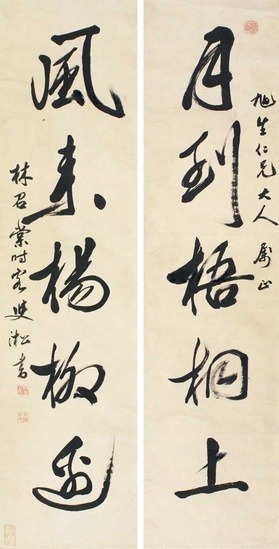 旭生仁兄大人屬正
月到梧桐上
風来楊柳邊
林召棠时客吳淞書